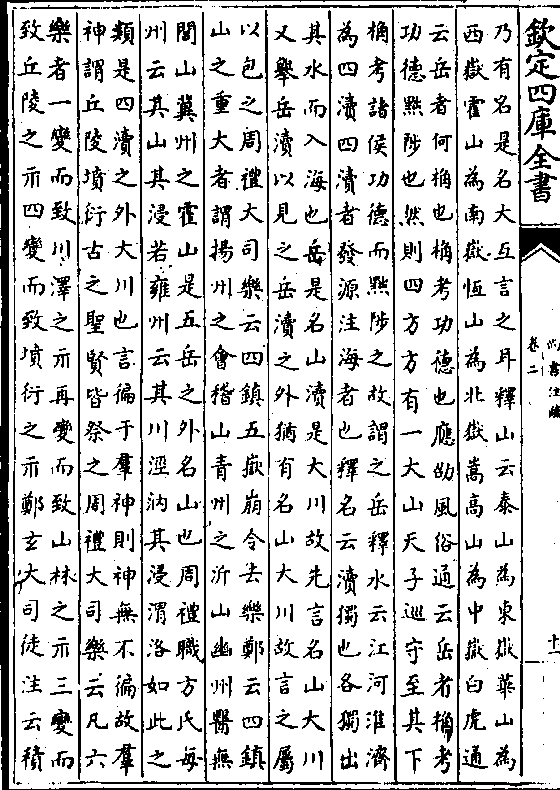 欽定四庫全書
尚書注疏
卷二
十
乃有名是名大互言之耳釋山云泰山為東嶽華山為
西嶽霍山為南嶽恆山為北嶽嵩高山為中嶽白虎通
云岳者何桷也桷考功德也應劭風俗通云岳者桷考
功德黜陟也然則四方方有一大山天子巡守至其下
桷考諸侯功德而黜陟之故謂之岳釋水云江河淮濟
為四瀆四瀆者發源注海者也釋名云瀆獨也各獨出
其水而入海也岳是名山瀆是大川故先言名山大川
又舉岳瀆以見之岳瀆之外猶有名山大川故言之屬
以包之周禮大司樂云四鎮五嶽崩令去樂鄭云四鎮
山之重大者謂揚州之會稽山青州之沂山幽州醫無
閭山冀州之霍山是五岳之外名山也周禮職方氏每
州云其山其浸若雍州云其川涇汭其浸渭洛如此之
類是四瀆之外大川也言徧于羣神則神無不徧故羣
神謂丘陵墳衍古之聖賢皆祭之周禮大司樂云凡六
樂者一變而致川澤之示再變而致山林之示三變而
致丘陵之示四變而致墳衍之示鄭玄大司徒注云積